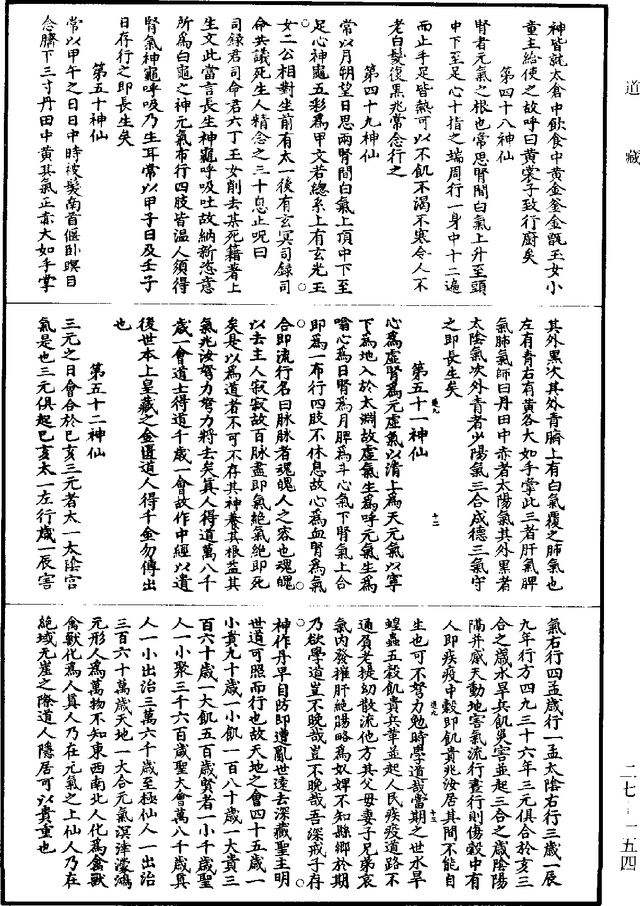 道藏
神皆就太倉中飲食中黃金釜金甑玉女小
童主給使之故呼曰黃裳子致行廚矣
第四十八神仙
腎者元氣之根也常思腎間白氣上升至頭
中下至足心十指之端周行一身中十二遍
而止手足皆熱可以不飢不渴不寒令人不
老白髮復黑兆常念行之
第四十九神仙
常以月朔望日思兩腎間白氣上頂中下至
足心神龜五彩為甲文者總系上有玄光玉
女二公相對坐前有太一後有玄冥司錄司
命共議死生人精念之三十息止呪曰
司錄君司命君六丁玉女削去某死籍著上
生文此當言長生神龜呼吸吐故納新恣意
所為白龜之神元氣布行四肢皆溫人須得
腎氣神龜呼吸乃生耳常以甲子日及壬子
日存行之即長生矣
第五十神仙
常以甲午之日日中時被髮南首偃臥暝目
念臍下三寸丹田中黃其氣正赤大如手掌
其外黑次其外青臍上有白氣覆之肺氣也
左有青右有黃各大如手掌此三者肝氣脾
氣肺氣師曰丹田中赤者太陽氣其外黑者
太陰氣次外青者少陽氣三合成德三氣守
之即長生矣
第五十一神仙
心為虛腎為元虛氣以清上為天元氣以寧
下為地入於太淵故虛氣生為呼元氣生為
噏心為日腎為月脾為斗心氣下腎氣上合
即為一布行四肢不休息故心為血腎為氣
合即流行名曰脉脉者魂魄人之容也魂魄
以去主人寂寂故百脉盡即氣絕氣絕即死
矣是以為道者不可不存其神養其根益其
氣兆汝努力努力將去矣真人得道萬八千
歲一會道士得道千歲一會故作中經以遺
後世本上皇藏之金匱道人得千金勿傳出
也
第五十二神仙
三元之日會合於巳亥三元者太一太陰害
氣是也三元俱起巳亥太一左行歲一辰害
氣右行四孟歲行一孟太陰右行三歲一辰
九年行方四九三十六年三元俱合於亥三
合之歲水旱兵飢災害並起三合之歲陰陽
隔并感天動地害氣流行晝行則傷穀中有
人即疾疫中穀即飢貴兆汝居其間不能自
生也可不努力勉時學道哉當期之世水旱
蝗蟲五穀飢貴兵革並起人民疾疫道路不
通負老提幼散流他方其父母妻子兄弟哀
氣內發摧肝絕腸略為奴婢不知縣鄉於期
乃欲學道豈不晚哉豈不晚哉吾深戒子存
神作丹早自防即遭亂世遠去深藏聖主明
世道可照而行也故天地之會四十五歲一
小貴九十歲一小飢一百八十歲一大貴三
百六十歲一大飢五百歲賢者一小千歲聖
人一小聚三千六百歲聖大會萬八千歲真
人一小出治三萬六千歲至極仙人一出治
三百六十萬歲天地一大合元氣溟涬濛鴻
元形人為萬物不知東西南北人化為禽獸
禽獸化為人真人乃在元氣之上仙人乃在
絕域无崖之際道人隱居可以貴重也
二七－一五四